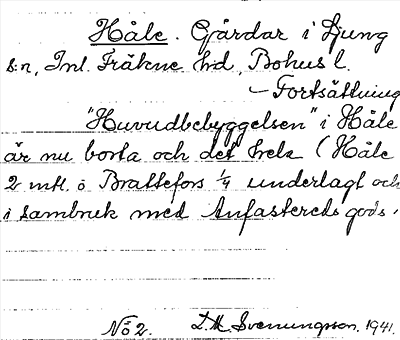 Håle. Gårdar i Ljung
s:n, Inl. Fräkne hd, Bohus l.
- Fortsättning
"Huvudbebyggelsen" i Håle
är nu borta och det hela (Håle
2 mtl. o Brattefors 1/4 underlagt och
i sambruk med Anfastereds gods.
Nö2. D. M. Svenungsson. 1941.